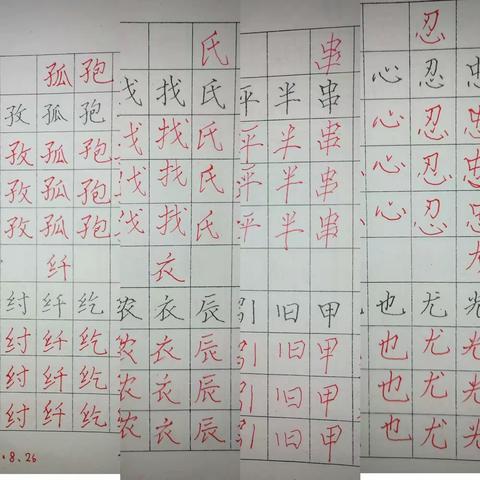 孤 孢
孜 孤 孢
孜 孤 孢
孜 孤 孢
孜 孤 孢
纤
纣 纤 纥
纣 纤 纥
纣 纤 纥
纣 纤 纥
8.26
氏
找 氏
找 氏
找 氏
找 氏
衣
农 衣 辰
农 衣 辰
农 衣 辰
农 衣 辰
串
平 半 串
平 半 串
平 半 串
平 半 串
引 旧 甲
引 旧 甲
引 旧 甲
引 旧 甲
忍
心 忍 忠
心 忍 忠
心 忍 忠
心 忍 忠
也 尤 光
也 尤 光
也 尤 光
也 尤 光